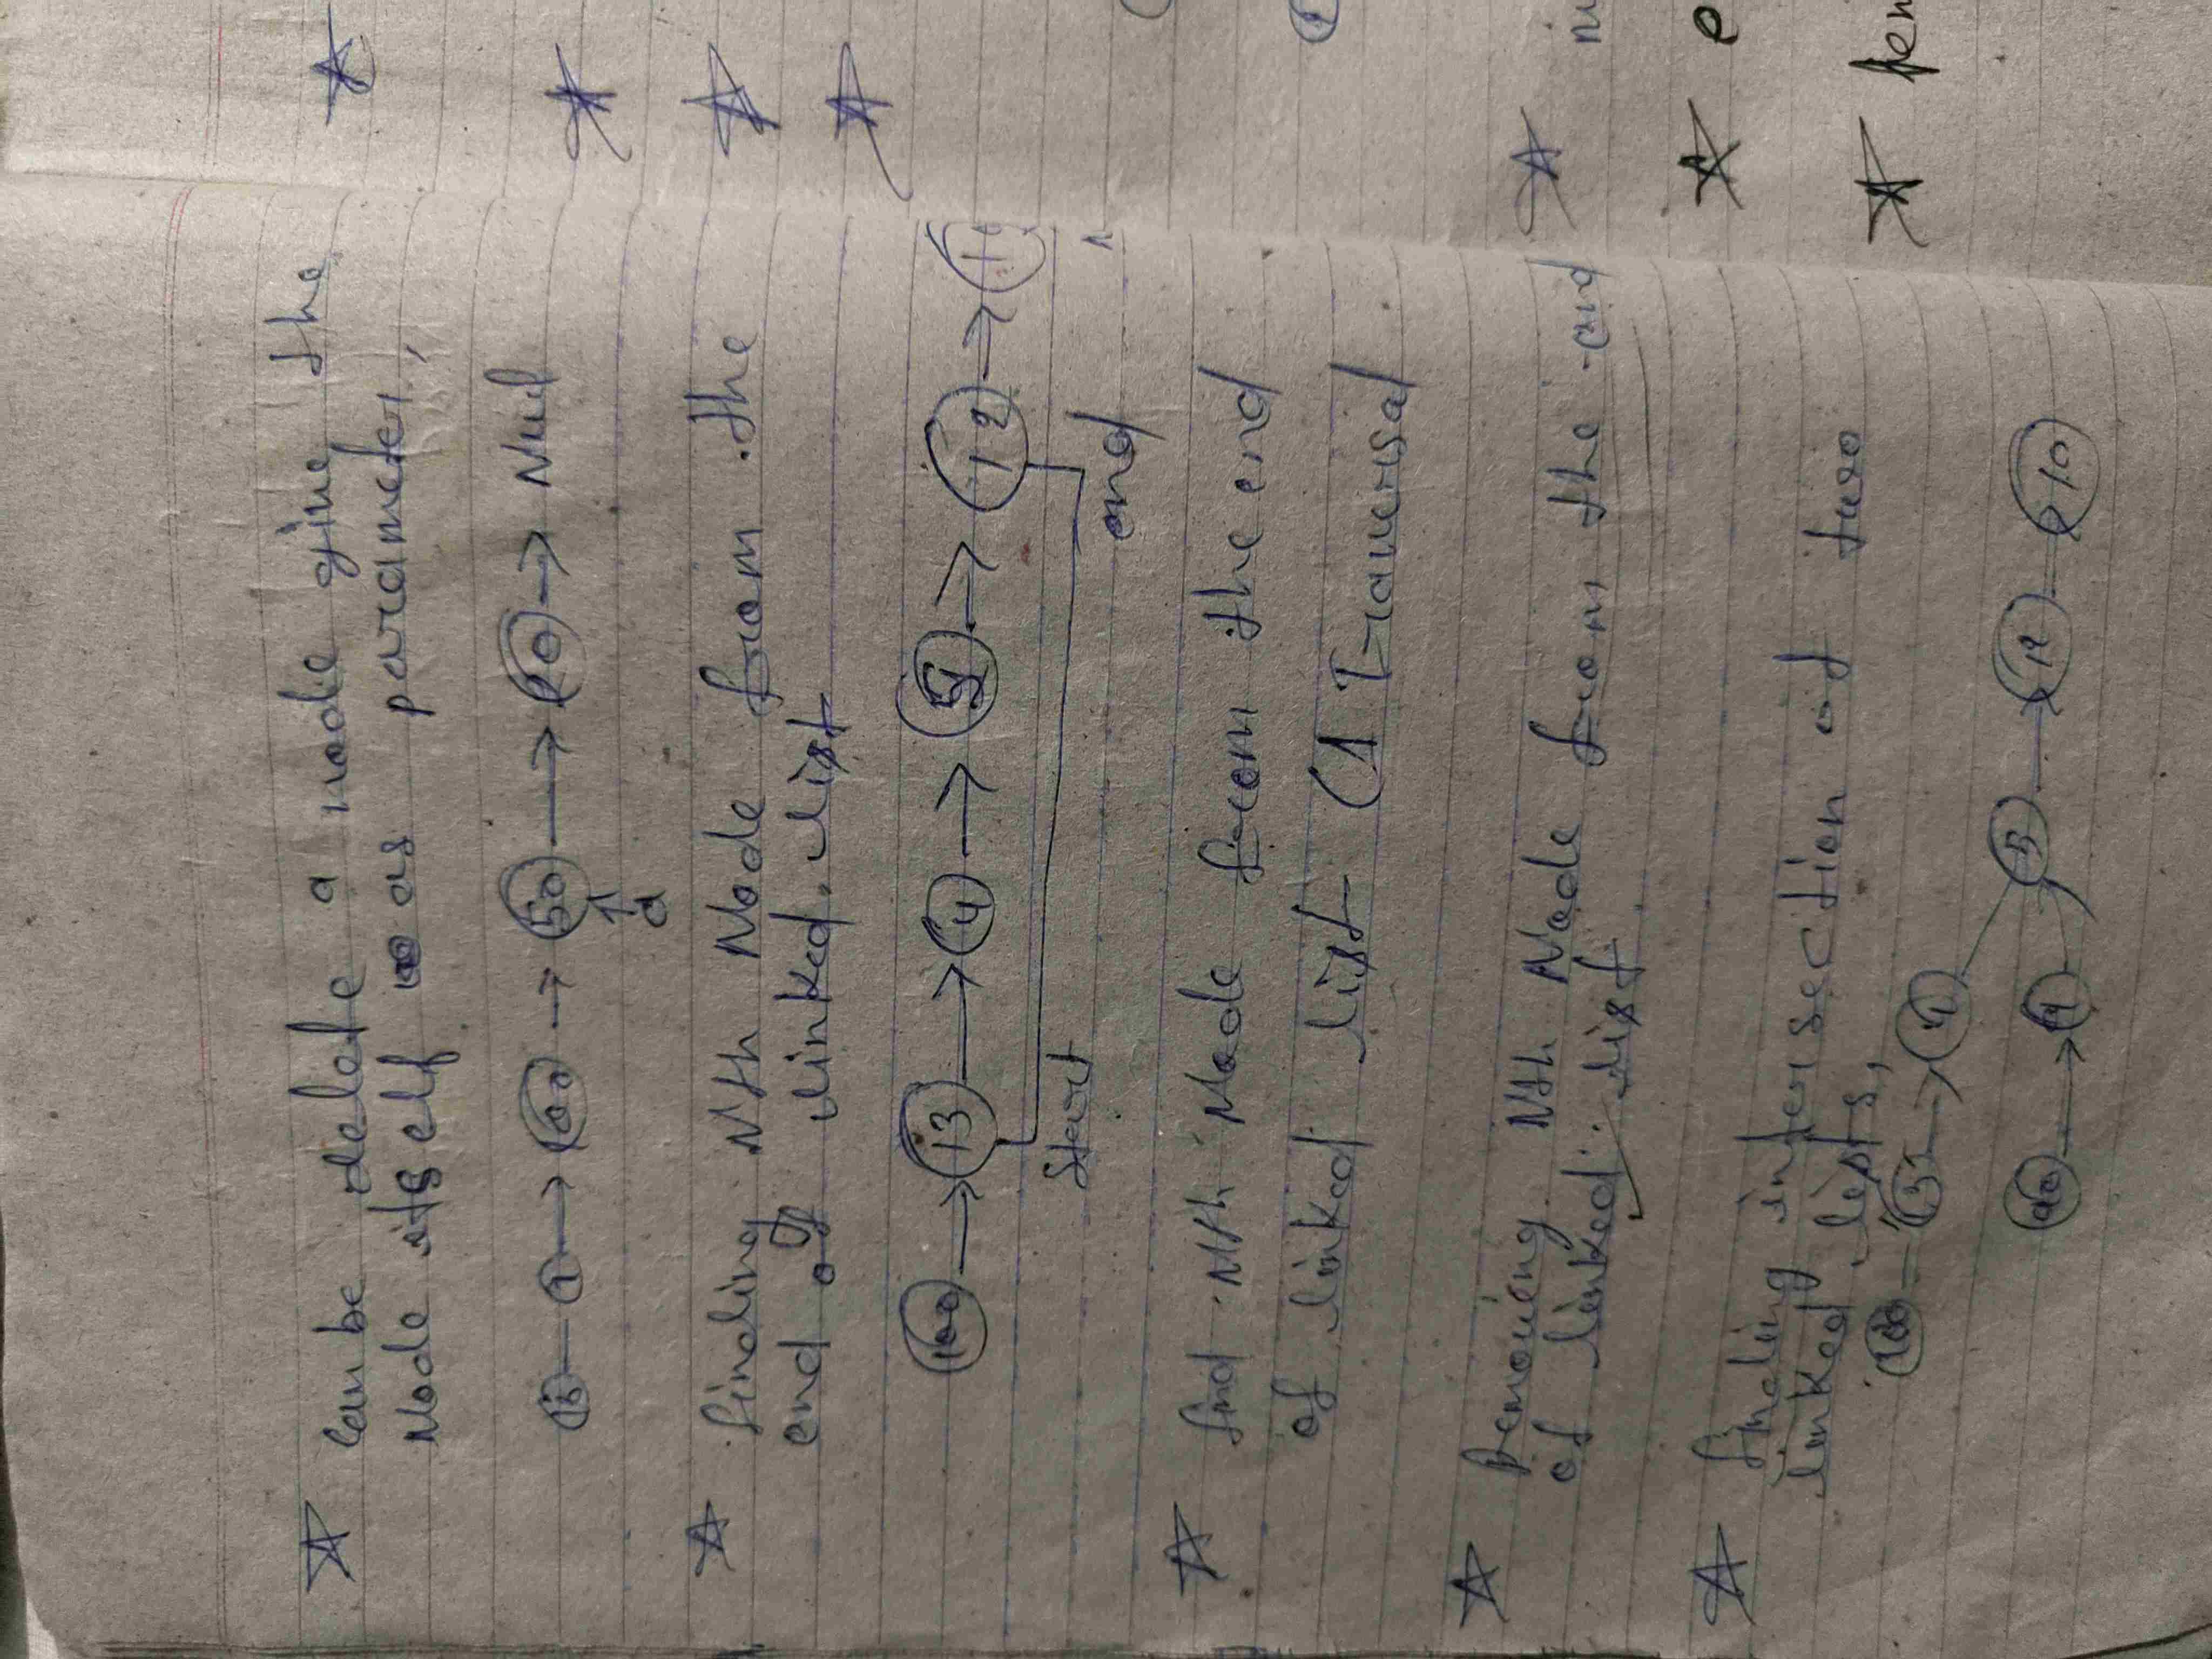 can be delete a node give the
Node itself as parameter,
13 9 → 100 → 50 → 20 → Null
a
finding Nth Node from the
end of linked list
100 → 13 → 4 → 5 → 12 →
start
end
find Nth Node from the end
of linked list (1 Traversal
Removing Nth Node from the end
of linked list.
finding intersection of two
linked lists,
100 13 → 4
90 → 9 5 → 12 → 10